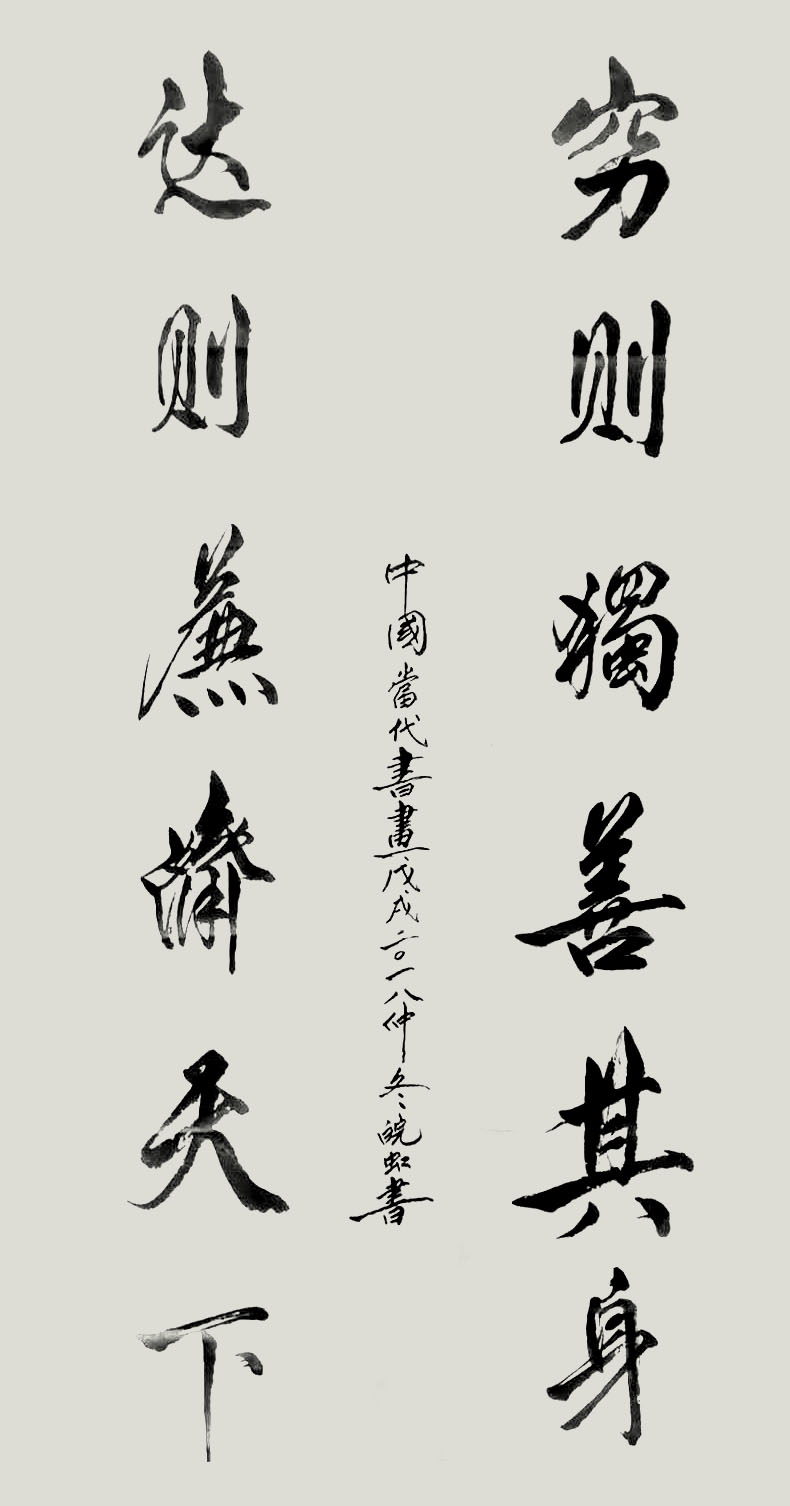 穷则獨善其身
中國當代書畫戊戌二〇一八仲冬皖虹書
达则兼濟天下